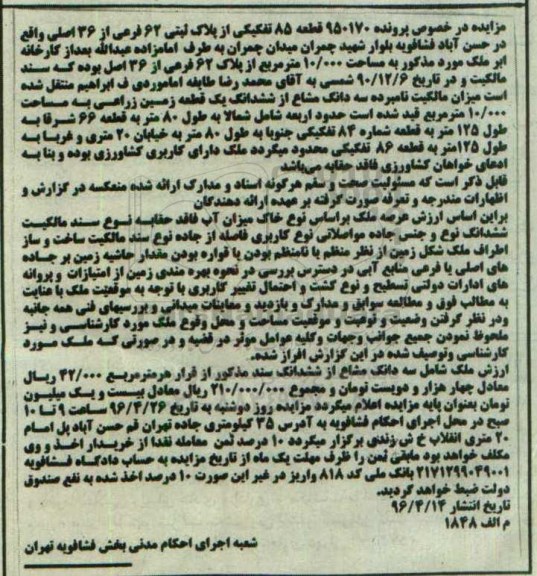 مزایده در خصوص پرونده ۹۵۰۱۷۰ قطعه ۸۵ تفکیکی از پلاک ثبتی ۶۲ فرعی از ۳۶ اصلی واقع
در حسن آباد فشافویه بلوار شهید چمران میدان چمران به طرف امامزاده عبدالله بعداز کارخانه
ابر ملک مورد مذکور به مساحت ۱۰/۰۰۰ مترمربع از پلاک ۶۲ فرعی از ۳۶ اصل بوده که سند
مالکیت و در تاریخ ۹۰/۱۲/۶ شمسی به آقای محمد رضا طایفه اماموردی ف ابراهیم منتقل شده
است میزان مالکیت نامبرده سه دانگ مشاع از ششدانگ یک قطعه زمین زراعی به مساحت
۱۰/۰۰۰ مترمربع قید شده است حدود اربعه شامل شمالا به طول ۸۰ متر به قطعه ۶۶ شرقا به
طول ۱۲۵ متر به قطعه شماره ۸۴ تفکیکی جنوبا به طول ۸۰ متر به خیابان ۲۰ متری و غربا به
طول ۱۲۵متر به قطعه ۸۶ تفکیکی محدود میگردد ملک دارای کاربری کشاورزی بوده و بنا به
ادعای خواهان کشاورزی فاقد حقابه می‌باشد
قابل ذکر است که مسئولیت صحت و سقم هرگونه اسناد و مدارک ارائه شده منعکسه در گزارش و
اظهارات مندرجه و تعرفه صورت گرفته بر عهده ارائه دهندگان
براین اساس ارزش عرصه ملک براساس نوع خاک میزان آب فاقد حقابه نوع سند مالکیت
ششدانگ نوع و جنس جاده مواصلاتی نوع کاربری فاصله از جاده نوع سند مالکیت ساخت و ساز
اطراف ملک شکل زمین از نظر منظم یا نامنظم بودن یا قواره بودن مقدار حاشیه زمین بر جاده
های اصلی یا فرعی منابع آبی در دسترس بررسی در نحوه بهره مندی زمین از امتیازات و پروانه
های ادارات دولتی تسطیح و نوع کشت و احتمال تغییر کاربری با توجه به موقعیت ملک با عنایت
به مطالب فوق و مطالعه سوابق و مدارک و بازدید و معاینات میدانی و بررسیهای فنی همه جانبه
ودر نظر گرفتن وضعیت و نوعیت و موقعیت مساحت و محل وقوع ملک مورد کارشناسی و نیز
ملحوظ نمودن جمیع جوانب وجهات وکلیه عوامل موثر در قضیه و در صورتی که ملک مورد
کارشناسی وتوصیف شده در این گزارش افراز شده.
ارزش ملک شامل سه دانگ مشاع از ششدانگ سند مذکور از قرار هرمترمربع ۴۲/۰۰۰ ریال
معادل چهار هزار و دویست تومان و مجموع ۲۱۰/۰۰۰/۰۰۰ ریال معادل بیست و یک میلیون
تومان بعنوان پایه مزایده اعلام میگردد مزایده روز دوشنبه به تاریخ ۹۶/۴/۲۶ ساعت ۹ تا ۱۰
صبح در محل اجرای احکام فشافویه به آدرس ۳۵ کیلومتری جاده تهران قم حسن آباد بل امام
۲۰ متری انقلاب خ ش زندی برگزار میگردد ۱۰ درصد ثمن معامله نقدا از خریدار اخذ و وی
مکلف خواهد بود مابقی ثمن را ظرف مهلت یک ماه از تاریخ مزایده به حساب دادگاه فشافویه
۲۱۷۱۲۹۹۰۴۹۰۰۱ بانک ملی کد ۸۱۸ واریز در غیر این صورت ۱۰ درصد اخذ شده به نفع صندوق
دولت ضبط خواهد گردید.
تاریخ انتشار ۹۶/۴/۱۴
م الف ۱۸۴۸
شعبه اجرای احکام مدنی بخش فشافویه تهران